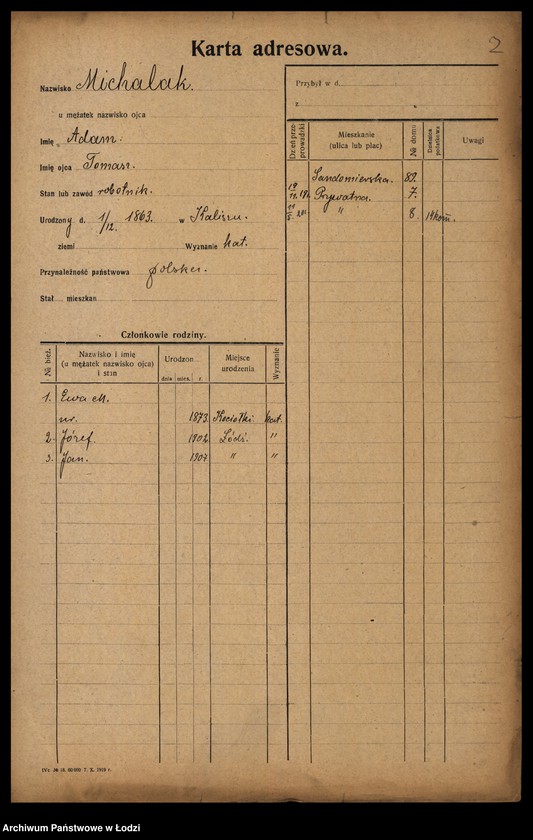 2
Karta adresowa.
Nazwisko Michalak.
u mężatek nazwisko ojca
Imię Adam.
Imię ojca Tomasz.
Stan lub zawód robotnik.
Urodzony d. 1/12. 1863. w Kaliszu.
ziemi Wyznanie kat.
Przynależność państwowa polska.
Stał. mieszkan
Przybył w d.
z
Dzień przeprowadzki Mieszkanie (ulica lub plac) № domu Dzielnica podatkowa Uwagi
Sandomierska. 82
Prywatna. 7.
" 8. 14 kom.
Członkowie rodziny.
№ bież. Nazwisko i imię (u mężatek nazwisko ojca) i stan Urodzon Miejsce urodzenia Wyznanie
dnia mies. r.
1. Ewa M.
ur. 1873. kat.
2. Józef. 1902 Łódź. "
3. Jan. 1907 " "
7. X. 1918 r.
Archiwum Państwowe w Łodzi